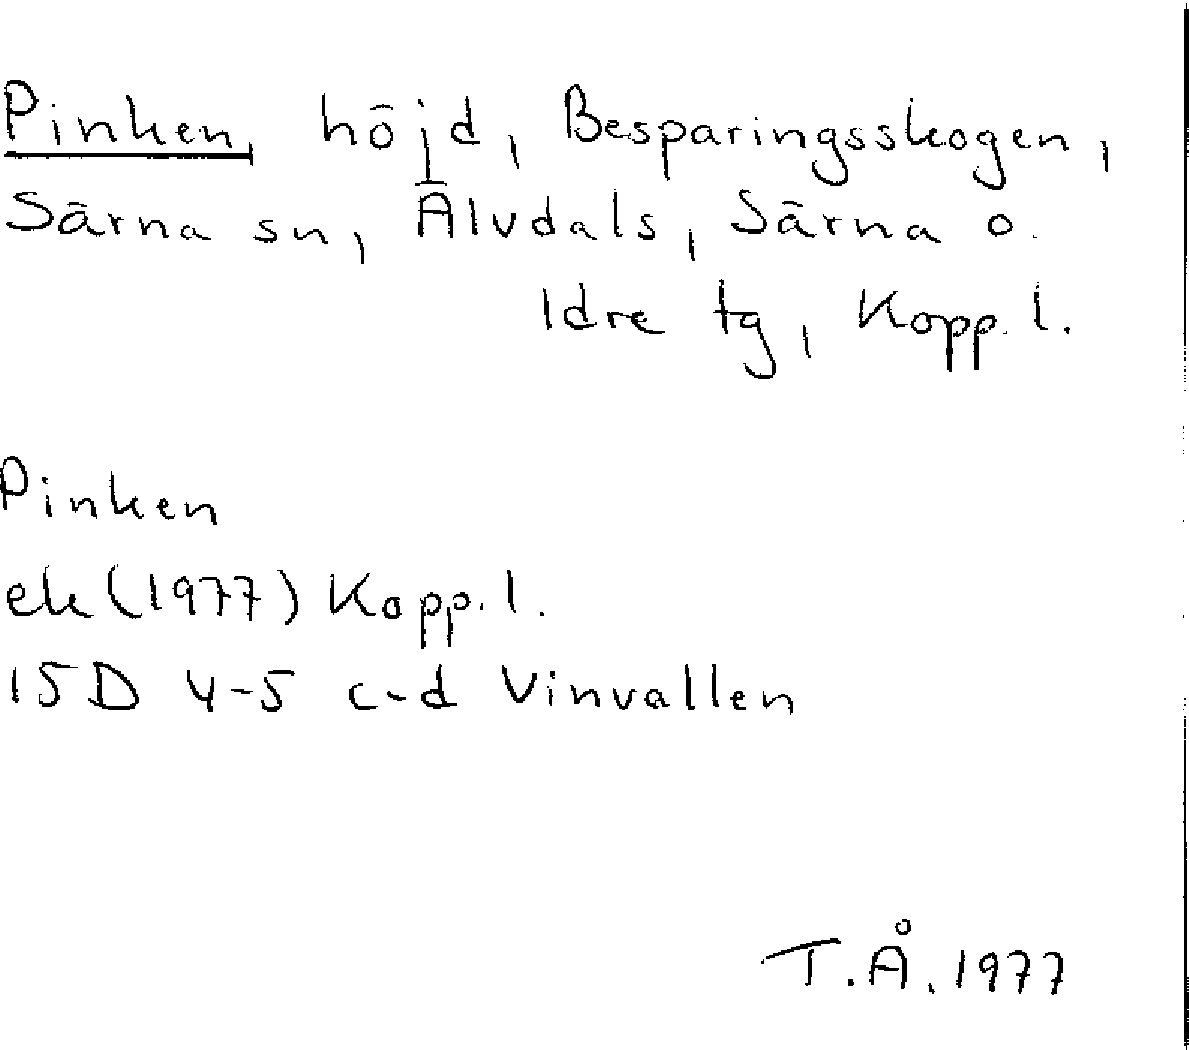 Pinken, höjd, Besparingsskogen,
Särna sn, Älvdals, Särna o.
Idre tg, Kopp. l.
Pinken
ek (1977) Kopp. l.
15D 4-5 c-d Vinvallen
T.Å. 1977